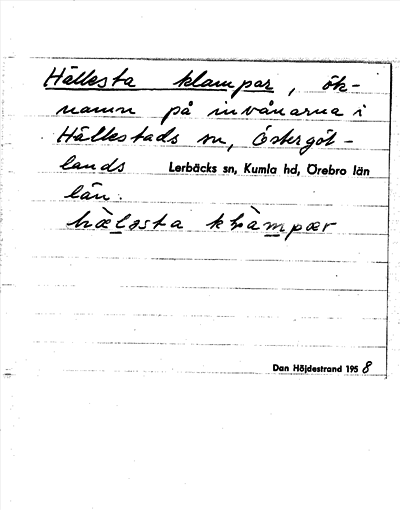 Hällesta klampar, ök-
namn på invånarna i
Hällestads sn, Östergöt-
lands Lerbäcks sn, Kumla hd, Örebro län
län.
Dan Höjdestrand 1958